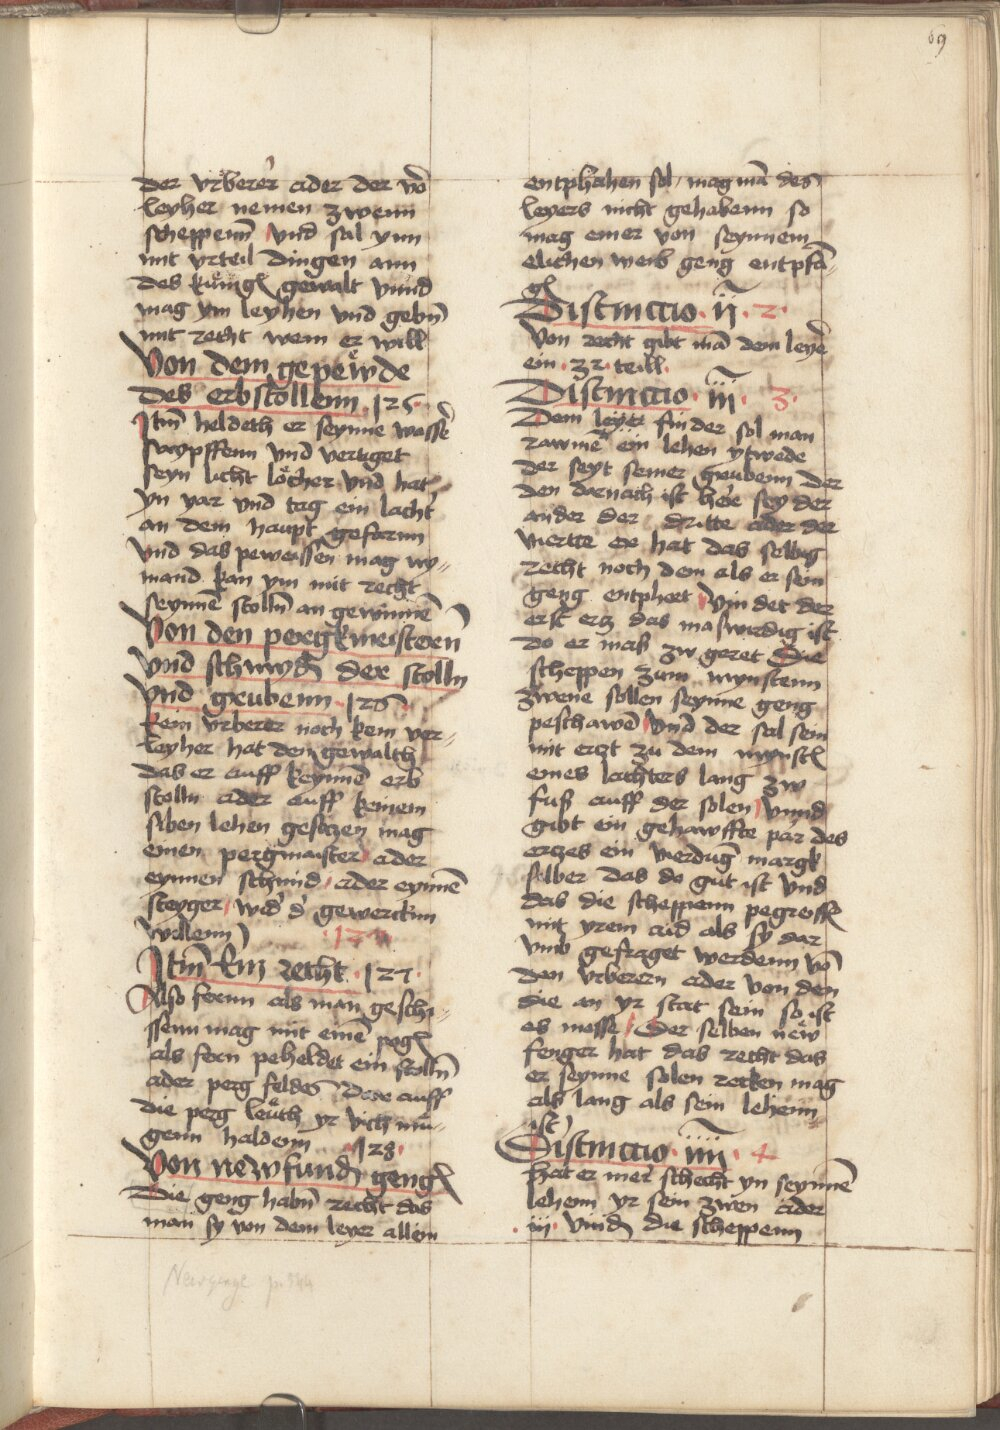 69
der urberer ader der vō
leyher nemen zwenn
scheppenn und sal ynn
mit urteil dingen ann
des künigs gewalt vnnd
mag ym leyhen vnd gebn̄
mit recht wem er will
Von dem gepewde
des erbstollenn .125.
Itm̄ heldeth er seynne wasser
seypffenn vnd vertiget
seyn licht löcher vnd hat
yn yar vnd tag ein lachtʼ
an dem haupt gefarnn
vnd das peweissen mag ny-
mand kan ym mit recht
seynnē stolln̄ an gewinnē
Von den pergkmeisterēn
vnd schmyd der stolln
vnd grubenn .126.
Kein urberer noch kein ver-
leyher hat den gewalth
das er auff keynnē erb
stolln ader auff keinem
siben lehen gesetzen mag
einen pergmaister ader
eynnen schmid ader eynnē
steyger wid' d' gewerckñn
willenn
Itm̄ ein recht .127.
Also fernn als man geschi-
ssenn mag mit einē pogñ
als fern peheldet ein stolln̄
ader perg feldes dar auff
die perg leuth yr vich mu-
genn haldenn .128.
Von newfund geng
Die geng habn̄ recht das
man sy von dem leyer allein
entphahen sol, mag mā des
leyers nicht gehabenn so
mag einer von seynnem
elichen weib geng entpfā-
gñ
Distinctio .ii. 2.
Von recht gibt mā dem leyer
ein .32. teill.
Distinctio .iii. 3.
Dem leyer finder sol man
rawmē ein lehen ytwede
der seyt seiner grubenn der
den darnach ist her sey der
ander der dritte ader der
viertte er hat das selbig
recht noch dem als er sein
geng entphert Vin det der
erst ertz das maswirdig ist
do er mass zw geret Die
scheppen zum mynstenn
zwene sollen seynne geng
peschawē vnd der sal sein
mit ertzt zu dem mynstñ
eines lachters lang zw
fuss auff der solen vnnd
gibt ein gehawffte par des
ertzes ein vierdug margk
silber das do gut ist vnd
das die scheppenn pegreiffñ
mit yrem aid als sy dar
vmb gefraget werdenn vō
den urberern ader von den
die an yr stat sein so ist
es messe Der selben new
fenger hat das recht das
er seynne solen recken mag
als lang als sein lehenn
ist
Distinctio .iiii. 4
Hat er mer schecht yn seynnē
lehenn yr sein zwen ader
.iii. vnnd die scheppenn